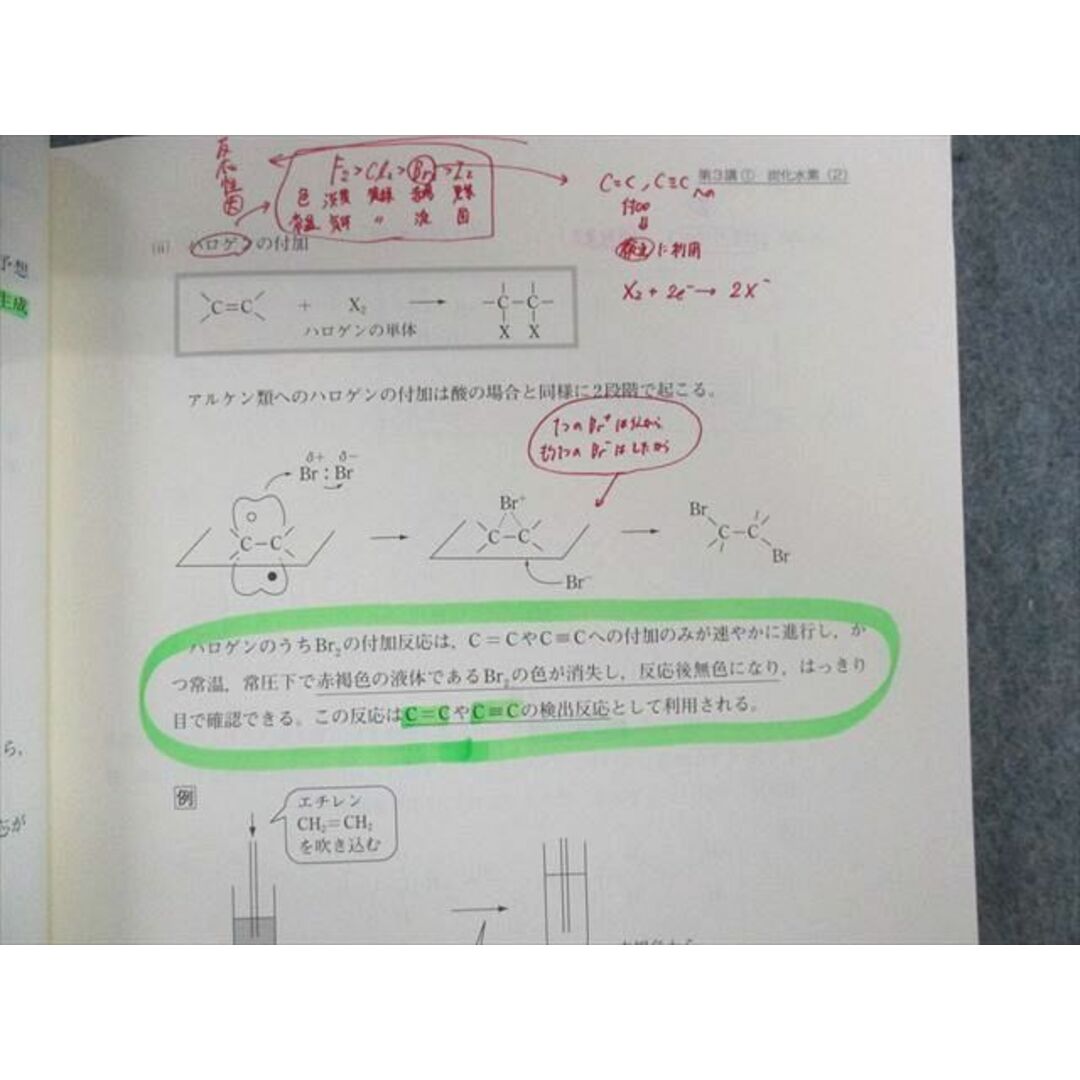 第3講① 炭化水素 (2)
F₂ > Cl₂ > Br₂ > I₂
色 淡黄 黄緑 赤褐 黒紫
常温 気体 〃 液 固
C=C, C≡Cへの
付加
⇓
検出に利用
X₂ + 2e⁻ → 2X⁻
(ii) ハロゲンの付加
C=C + X₂ → -C-C-
ハロゲンの単体 X X
アルケン類へのハロゲンの付加は酸の場合と同様に2段階で起こる。
1つのBr⁺は上から
もう1つのBr⁻はしたから
δ+ δ−
Br : Br
Br⁺
Br
C-C
C-C
C-C
Br
Br⁻
ハロゲンのうちBr₂の付加反応は，C=CやC≡Cへの付加のみが速やかに進行し，か
つ常温，常圧下で赤褐色の液体であるBr₂の色が消失し，反応後無色になり，はっきり
目で確認できる。この反応はC=CやC≡Cの検出反応として利用される。
例
エチレン
CH₂=CH₂
を吹き込む
予想
生成
ら，
応が